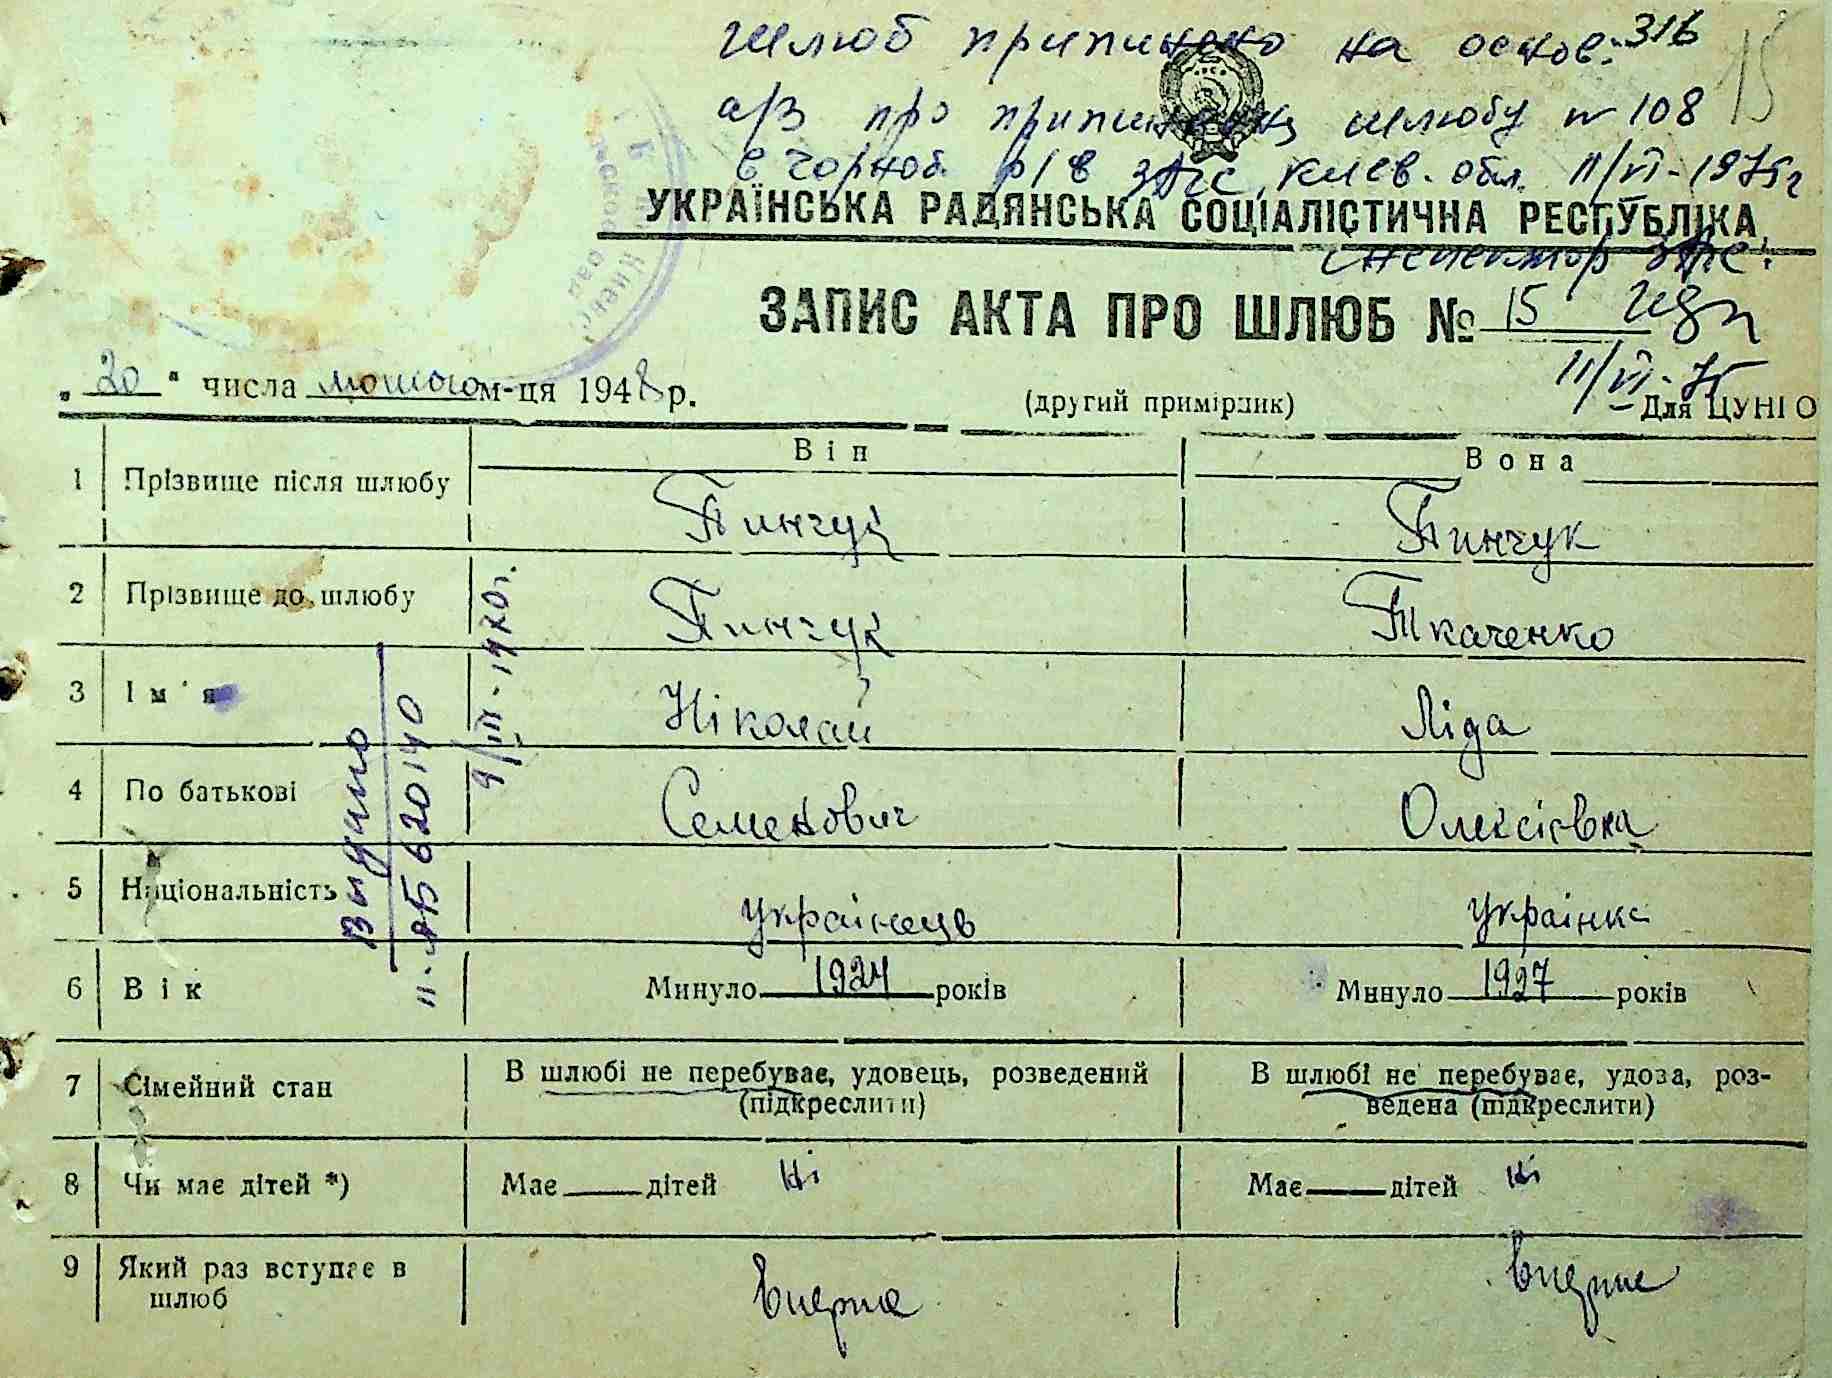 шлюб припинено на основ. 316
а/з про припинення шлюбу № 108
в Чорноб. р/в загс, Киев. обл. 11/VI-1975г
УКРАЇНСЬКА РАДЯНСЬКА СОЦІАЛІСТИЧНА РЕСПУБЛІКА
інспектор загс:
15
ЗАПИС АКТА ПРО ШЛЮБ № 15
11/VI-75
„20“ числа лютого м-ця 1948 р.
(другий примірник)
Для ЦУНГО
Він
Вона
1 Прізвище після шлюбу Пинчук Пинчук
2 Прізвище до шлюбу Пинчук Ткаченко
3 Ім'я Ніколай Ліда
4 По батькові Семенович Олексієвна
5 Національність українець українка
6 Вік Минуло 1924 років Минуло 1927 років
7 Сімейний стан В шлюбі не перебуває, удовець, розведений (підкреслити) В шлюбі не перебуває, удова, роз-
ведена (підкреслити)
8 Чи має дітей *) Має дітей ні Має дітей ні
9 Який раз вступає в шлюб вперше вперше
Видано
620140
9/III-1970г.